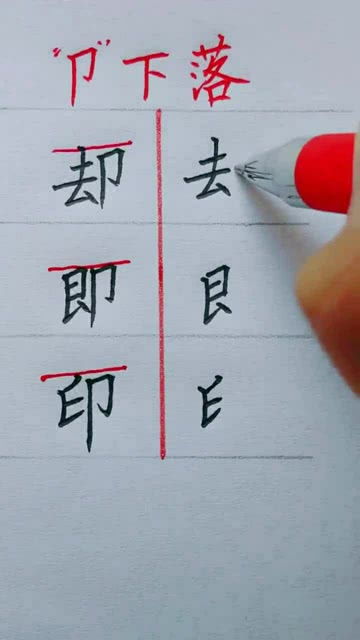 "卩"下落
却 去
即 𠃛
印